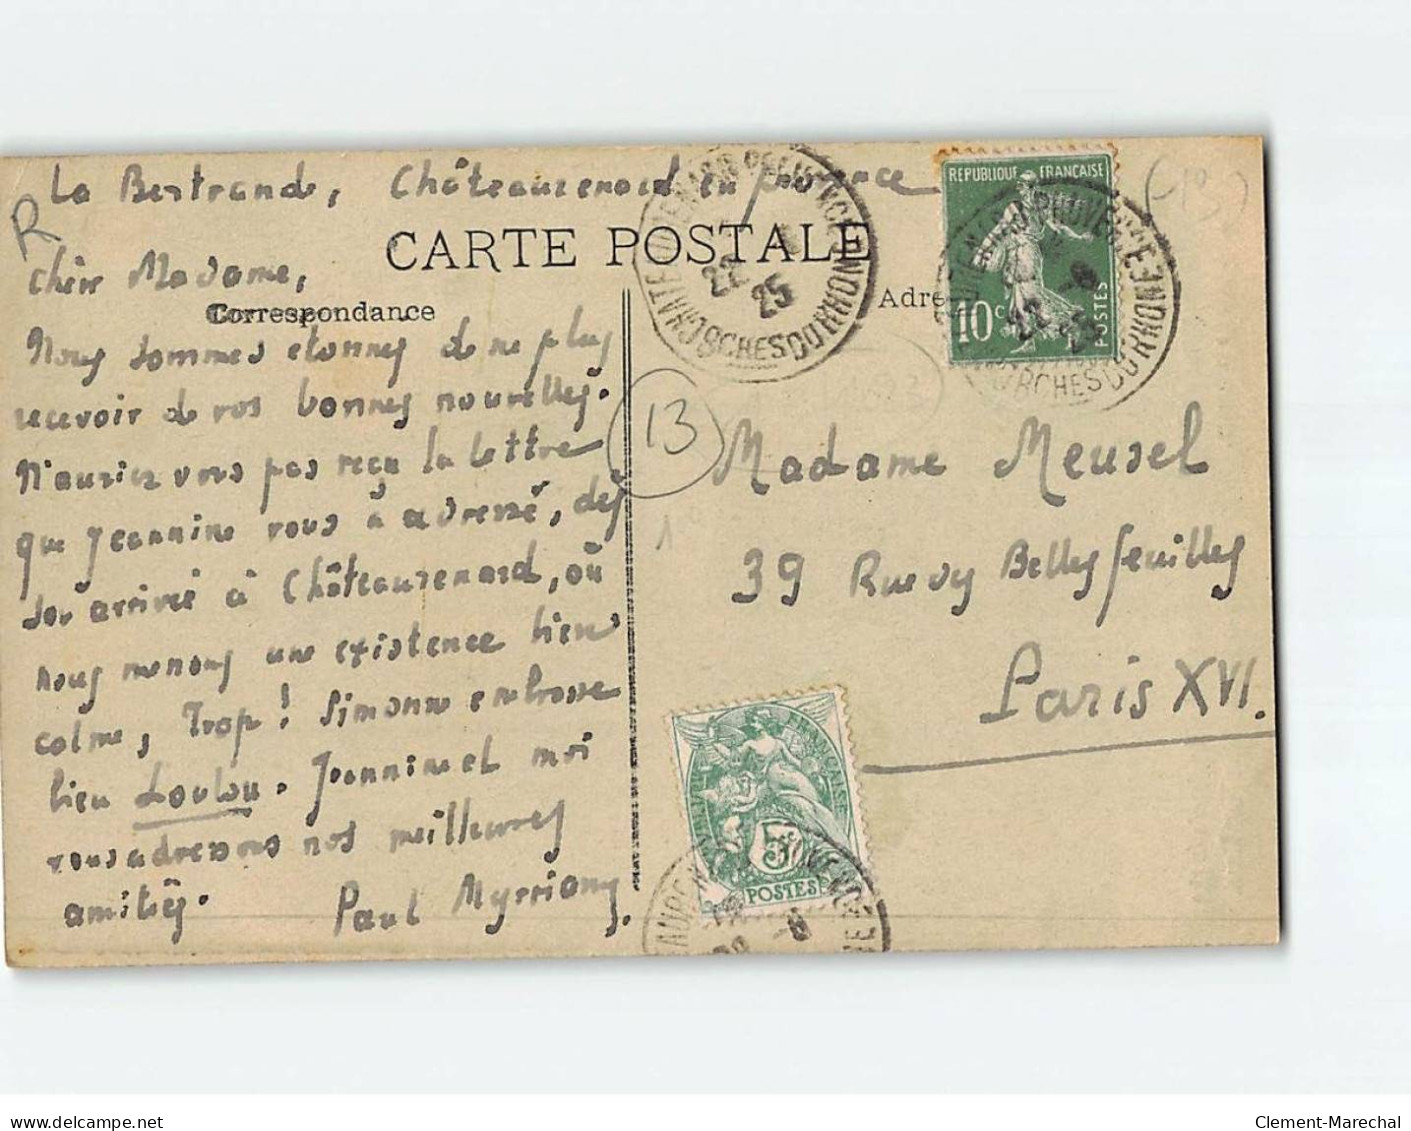 La Bertrande, Châteaurenard en Provence
R
CARTE POSTALE
Chère Madame,
Correspondance
Nous sommes étonnés de ne plus
recevoir de vos bonnes nouvelles.
N'auriez vous pas reçu la lettre
que Jeannine vous a adressé, dès
son arrivée à Châteaurenard, où
nous menons une existence bien
calme, Trop! Simonne embrasse
bien Loulou. Jeannine et moi
vous adressons nos meilleures
amitiés.
Paul
13
22
25
BCHES DU RHONE
RÉPUBLIQUE FRANÇAISE
10c
POSTES
22
25
BCHES DU RHONE
Madame Meusel
39 Rue des Belles feuilles
Paris XVI.
5c
POSTES
delcampe.net
Clement-Marechal